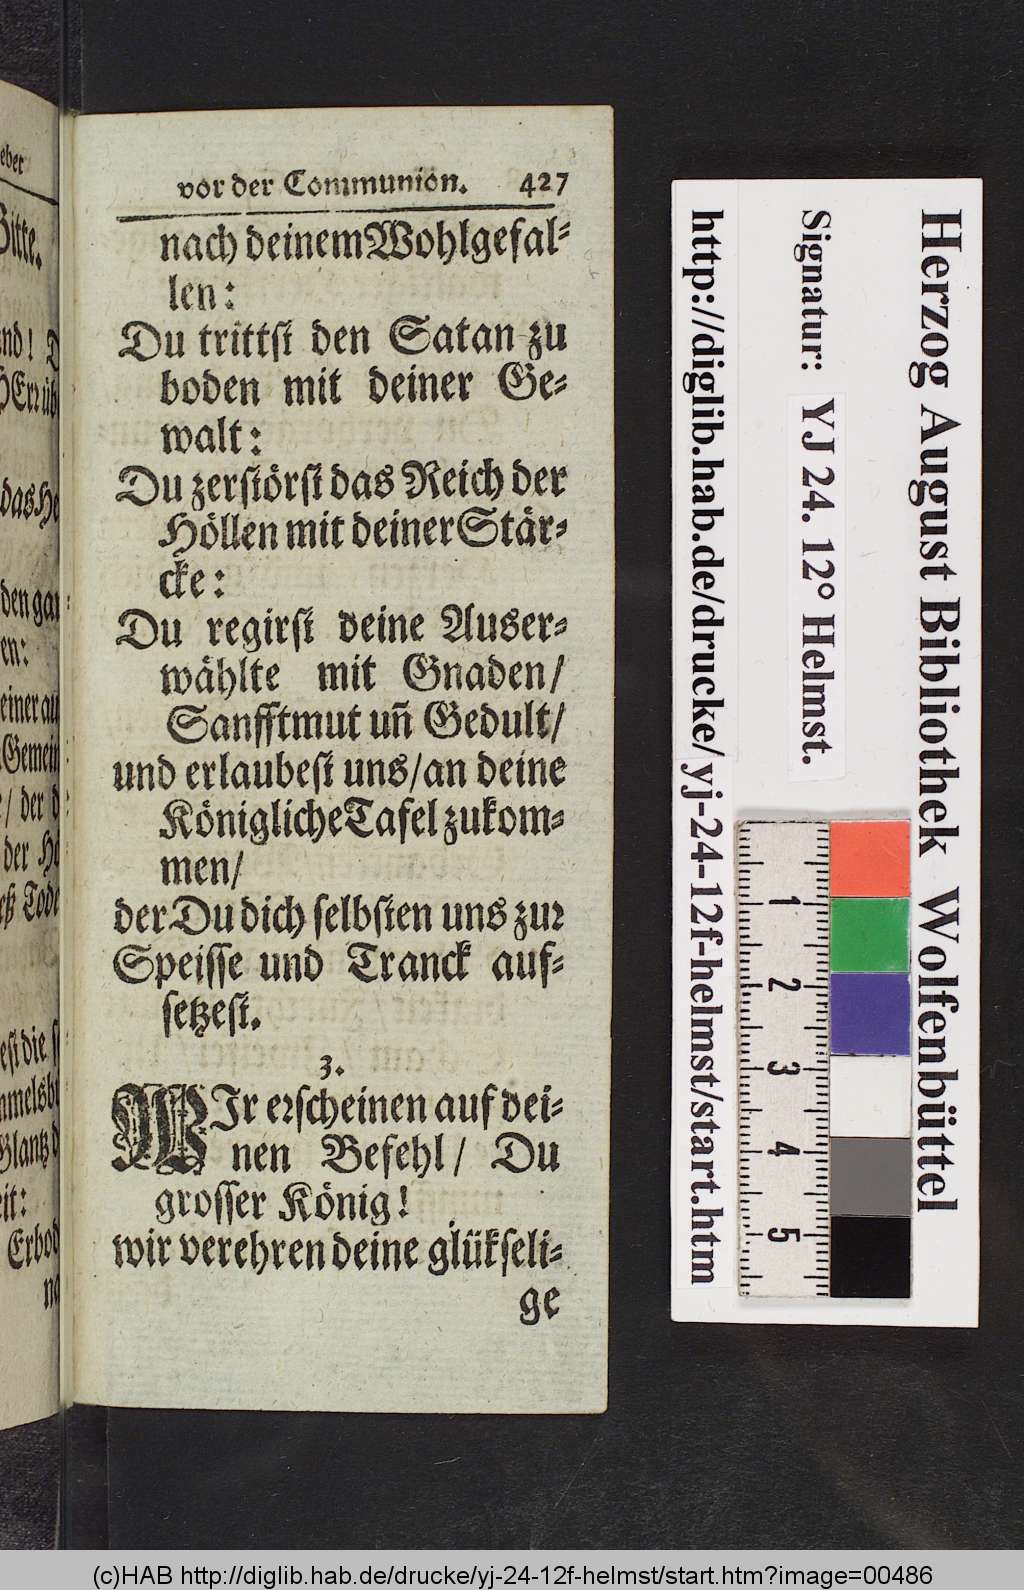 vor der Communion. 427
nach deinem Wohlgefal-
len:
Du trittst den Satan zu
boden mit deiner Ge-
walt:
Du zerstörst das Reich der
Höllen mit deiner Stär-
cke:
Du regirst deine Auser-
wählte mit Gnaden/
Sanfftmut uñ Gedult/
und erlaubest uns/an deine
Königliche Tafel zukom-
men/
der Du dich selbsten uns zur
Speisse und Tranck auf-
setzest.
3.
WIr erscheinen auf dei-
nen Befehl/ Du
grosser König!
wir verehren deine glükseli-
ge
Herzog August Bibliothek Wolfenbüttel
Signatur: YJ 24. 12° Helmst.
http://diglib.hab.de/drucke/yj-24-12f-helmst/start.htm
1
2
3
4
5
(c)HAB http://diglib.hab.de/drucke/yj-24-12f-helmst/start.htm?image=00486